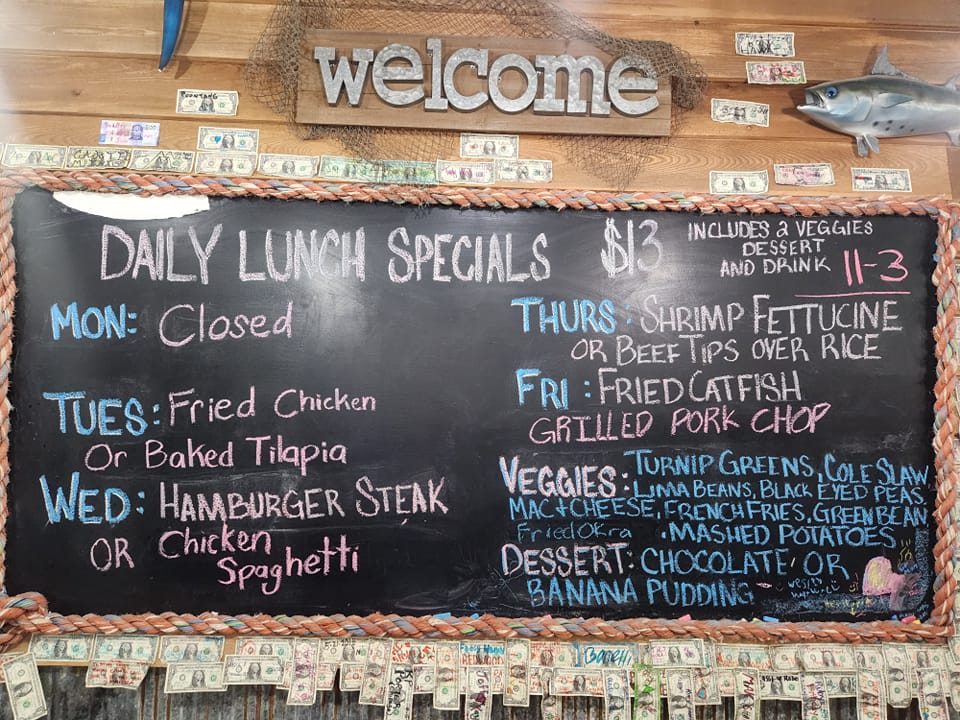 welcome
DAILY LUNCH SPECIALS $13
INCLUDES 2 VEGGIES
DESSERT
AND DRINK 11-3
MON: Closed
TUES: Fried Chicken
Or Baked Tilapia
WED: HAMBURGER STEAK
OR Chicken
Spaghetti
THURS: SHRIMP FETTUCINE
OR BEEF TIPS OVER RICE
FRI: FRIED CATFISH
GRILLED PORK CHOP
VEGGIES: TURNIP GREENS, COLE SLAW
LIMA BEANS, BLACK EYED PEAS
MAC + CHEESE, FRENCH FRIES, GREEN BEAN
Fried Okra . MASHED POTATOES
DESSERT: CHOCOLATE OR
BANANA PUDDING